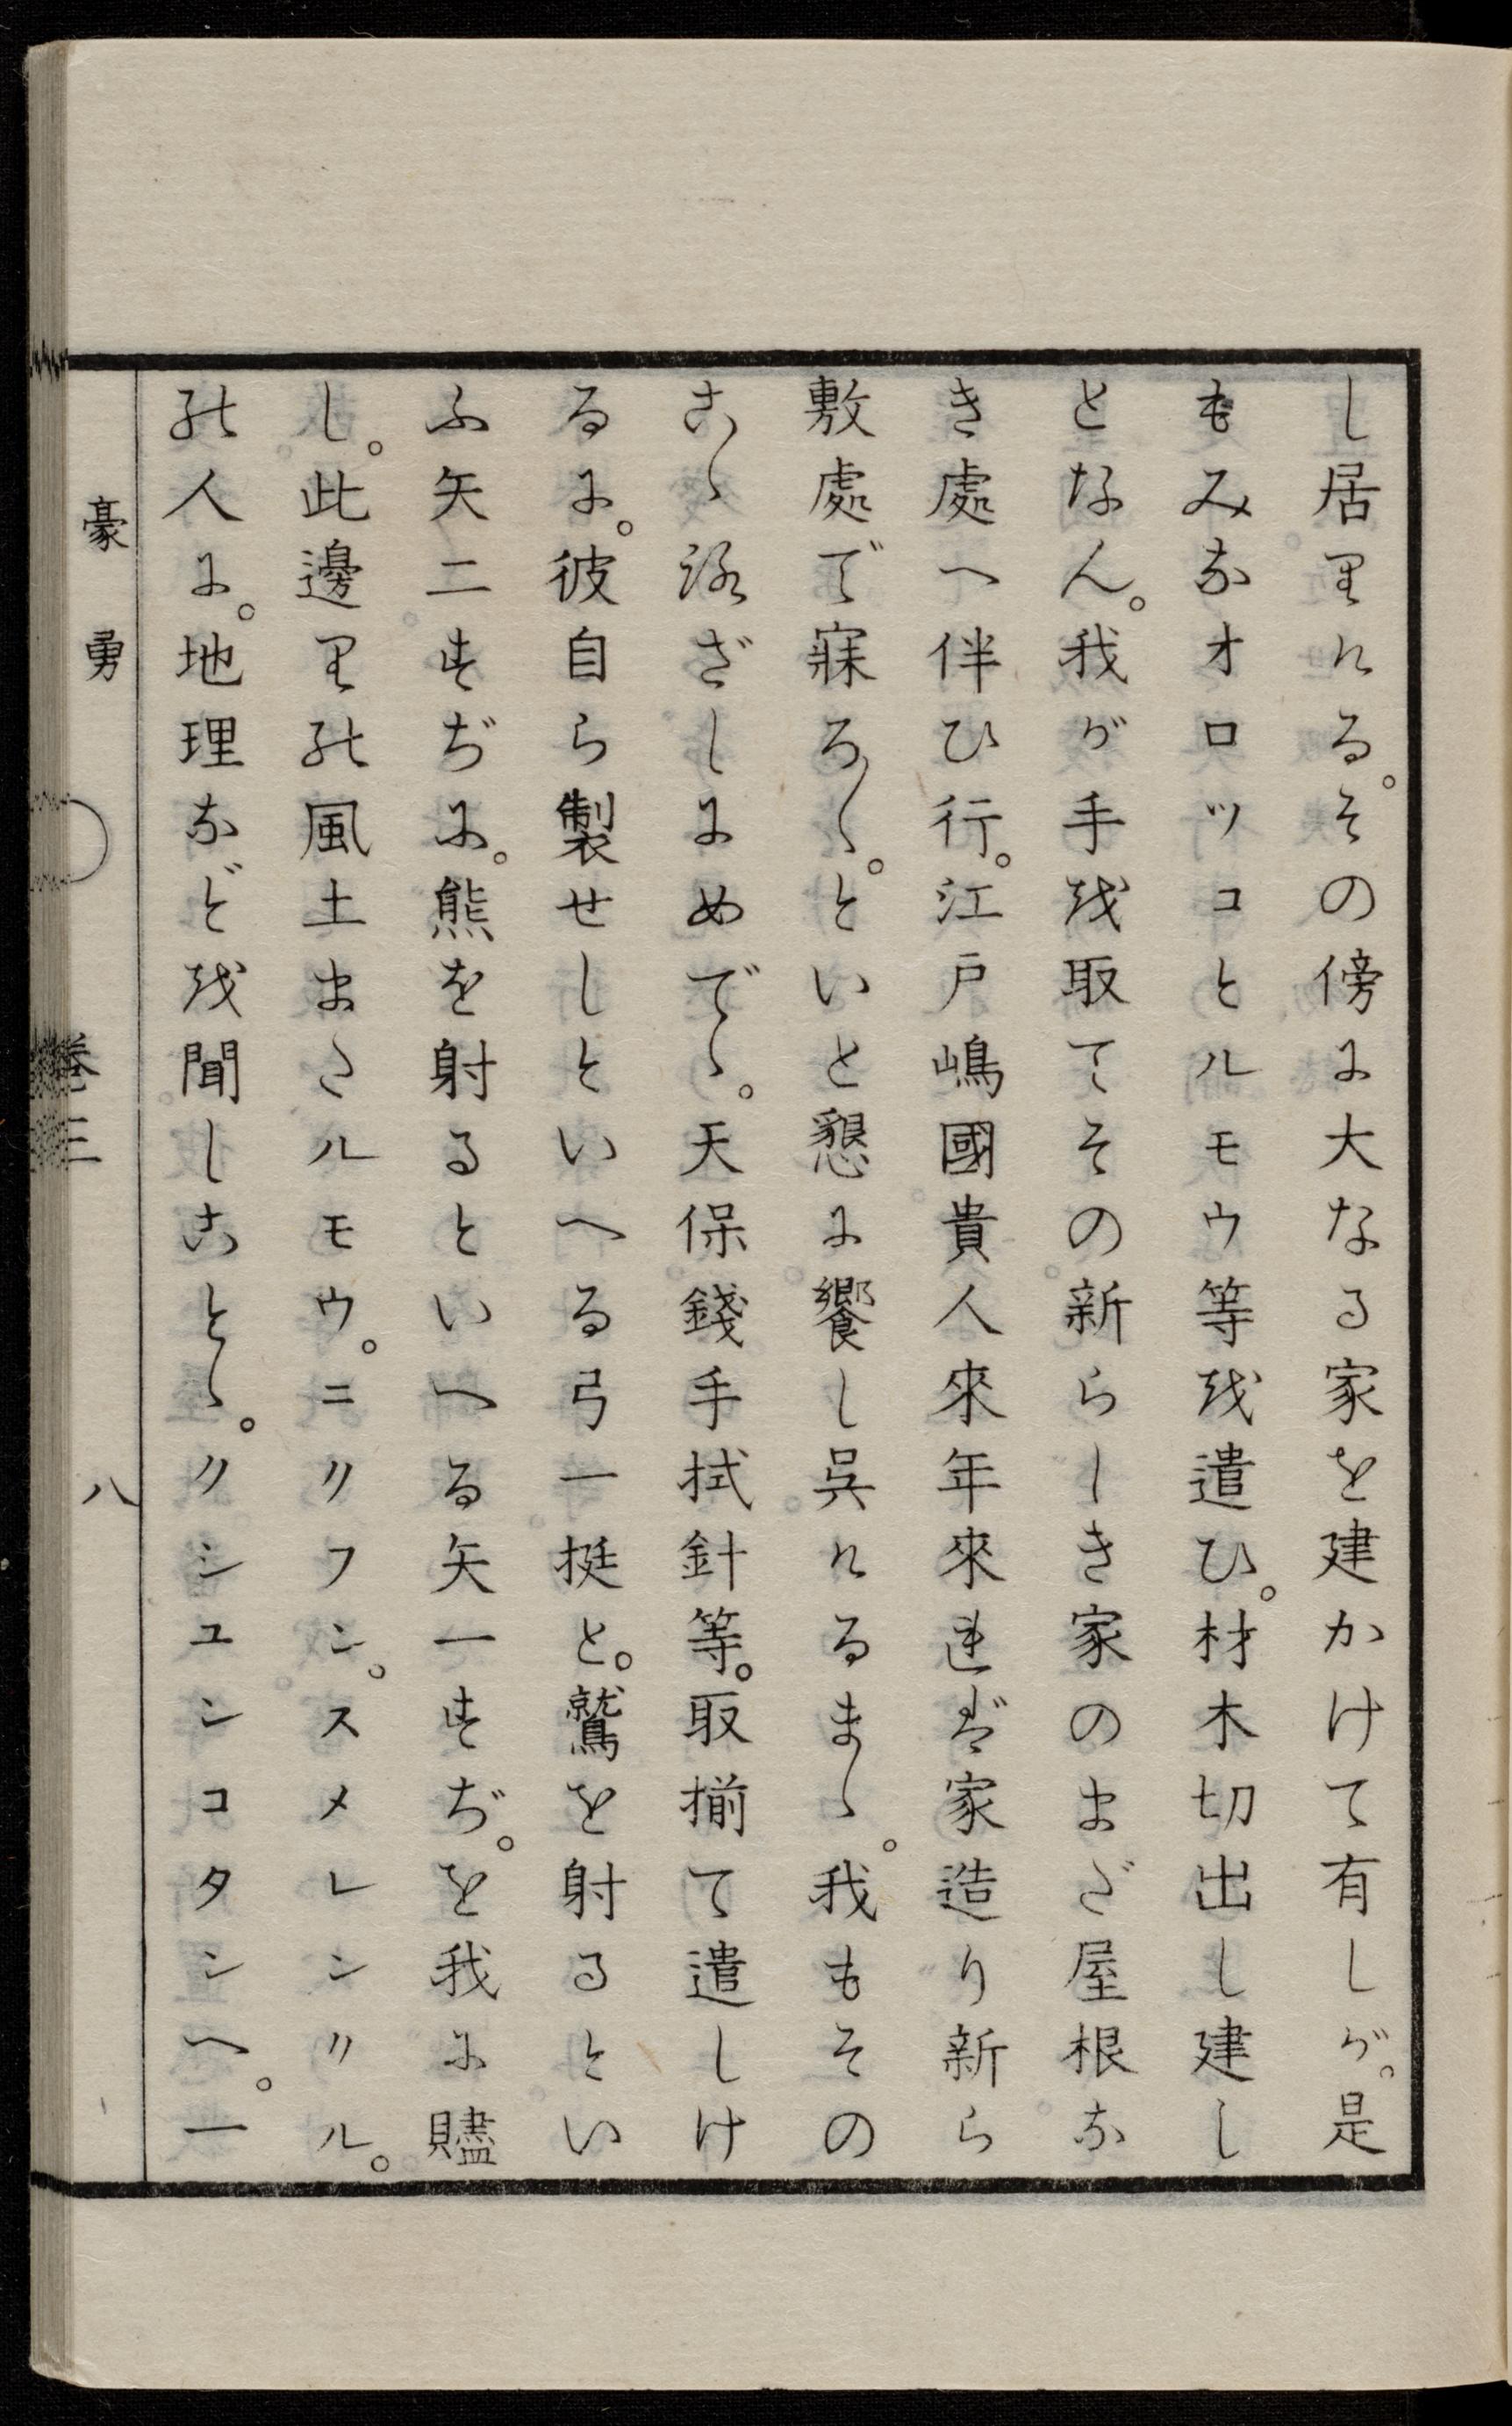 し居りれる。その傍に大なる家を建かけて有しが。是
もみなオロツコとルモウ等を遣ひ。材木切出し建し
となん。我が手を取てその新らしき家のまだ屋根な
き處へ伴ひ行。江戸嶋國貴人來年來ればゞ家造り新ら
敷處で寐ろ〳〵。といと懇に饗し呉れるまゝ。我もその
こゝろざしにめでゝ。天保錢手拭針等。取揃て遣しけ
るに。彼自ら製せしといへる弓一挺と。鷲を射るとい
ふ矢二すぢに。熊を射るといへる矢一すぢ。を我に贐
し。此邊りの風土またルモウ。ニクフン。スメレンクル。
の人に。地理などを聞しことゝ。クシユンコタンへ。一
豪勇
卷三
八